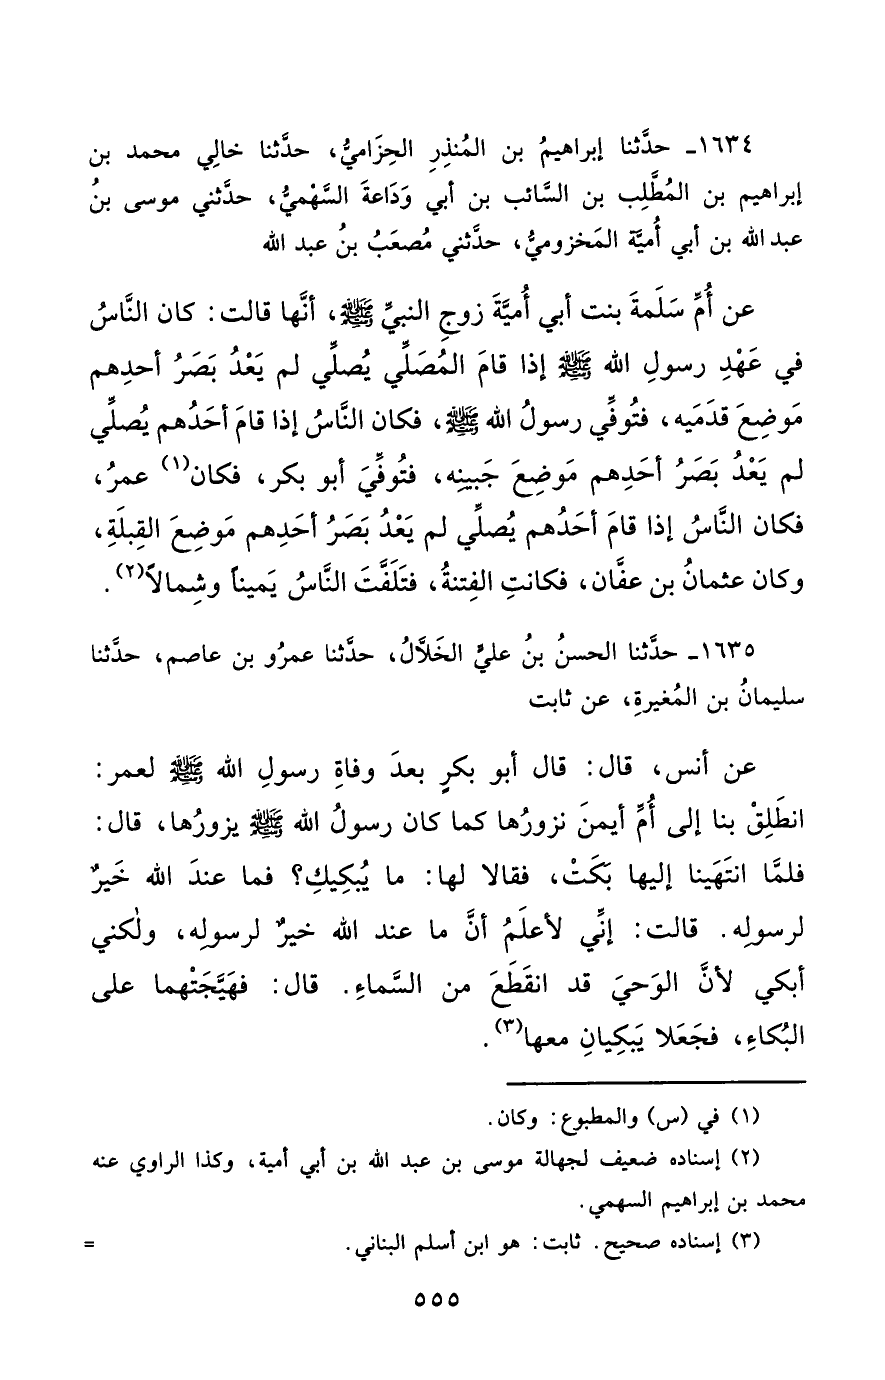 ١٦٣٤ـ حدَّثنا إبراهيمُ بن المُنذِرِ الحِزَاميُّ، حدَّثنا خالِي محمد بن
إبراهيم بن المُطَّلِب بن السَّائب بن أبي وَدَاعةَ السَّهْميُّ، حدَّثني موسى بنُ
عبد الله بن أبي أُميَّة المَخزوميُّ، حدَّثني مُصعَبُ بنُ عبد الله
عن أُمِّ سَلَمةَ بنت أبي أُميَّةَ زوجِ النبيِّ ﷺ، أنَّها قالت: كان النَّاسُ
في عَهْدِ رسولِ الله ﷺ إذا قامَ المُصَلِّي يُصلِّي لم يَعْدُ بَصَرُ أحدِهم
مَوضِعَ قدَمَيه، فتُوفِّي رسولُ الله ﷺ، فكان النَّاسُ إذا قامَ أحَدُهم يُصلِّي
لم يَعْدُ بَصَرُ أحَدِهم مَوضِعَ جَبينِه، فتُوفِّيَ أبو بكر، فكان(١) عمرُ،
فكان النَّاسُ إذا قامَ أحَدُهم يُصلِّي لم يَعْدُ بَصَرُ أحَدِهم مَوضِعَ القِبلَةِ،
وكان عثمانُ بن عفَّان، فكانتِ الفِتنةُ، فتَلَفَّتَ النَّاسُ يَميناً وشِمالاً(٢).
١٦٣٥ـ حدَّثنا الحسنُ بنُ عليٍّ الخَلَّالُ، حدَّثنا عمرُو بن عاصم، حدَّثنا
سليمانُ بن المُغيرةِ، عن ثابت
عن أنس، قال: قال أبو بكرٍ بعدَ وفاةِ رسولِ الله ﷺ لعمر:
انطَلِقْ بنا إلى أُمِّ أيمنَ نزورُها كما كان رسولُ الله ﷺ يزورُها، قال:
فلمَّا انتَهَينا إليها بَكَتْ، فقالا لها: ما يُبكِيكِ؟ فما عندَ الله خَيرٌ
لرسولِه. قالت: إنِّي لأعلَمُ أنَّ ما عند الله خيرٌ لرسولِه، ولٰكني
أبكي لأنَّ الوَحيَ قد انقَطَعَ من السَّماءِ. قال: فهَيَّجَتْهما على
البُكاءِ، فجَعَلا يَبكِيانِ معها(٣).
(١) في (س) والمطبوع: وكان.
(٢) إسناده ضعيف لجهالة موسى بن عبد الله بن أبي أمية، وكذا الراوي عنه
محمد بن إبراهيم السهمي.
(٣) إسناده صحيح. ثابت: هو ابن أسلم البناني. =
٥٥٥